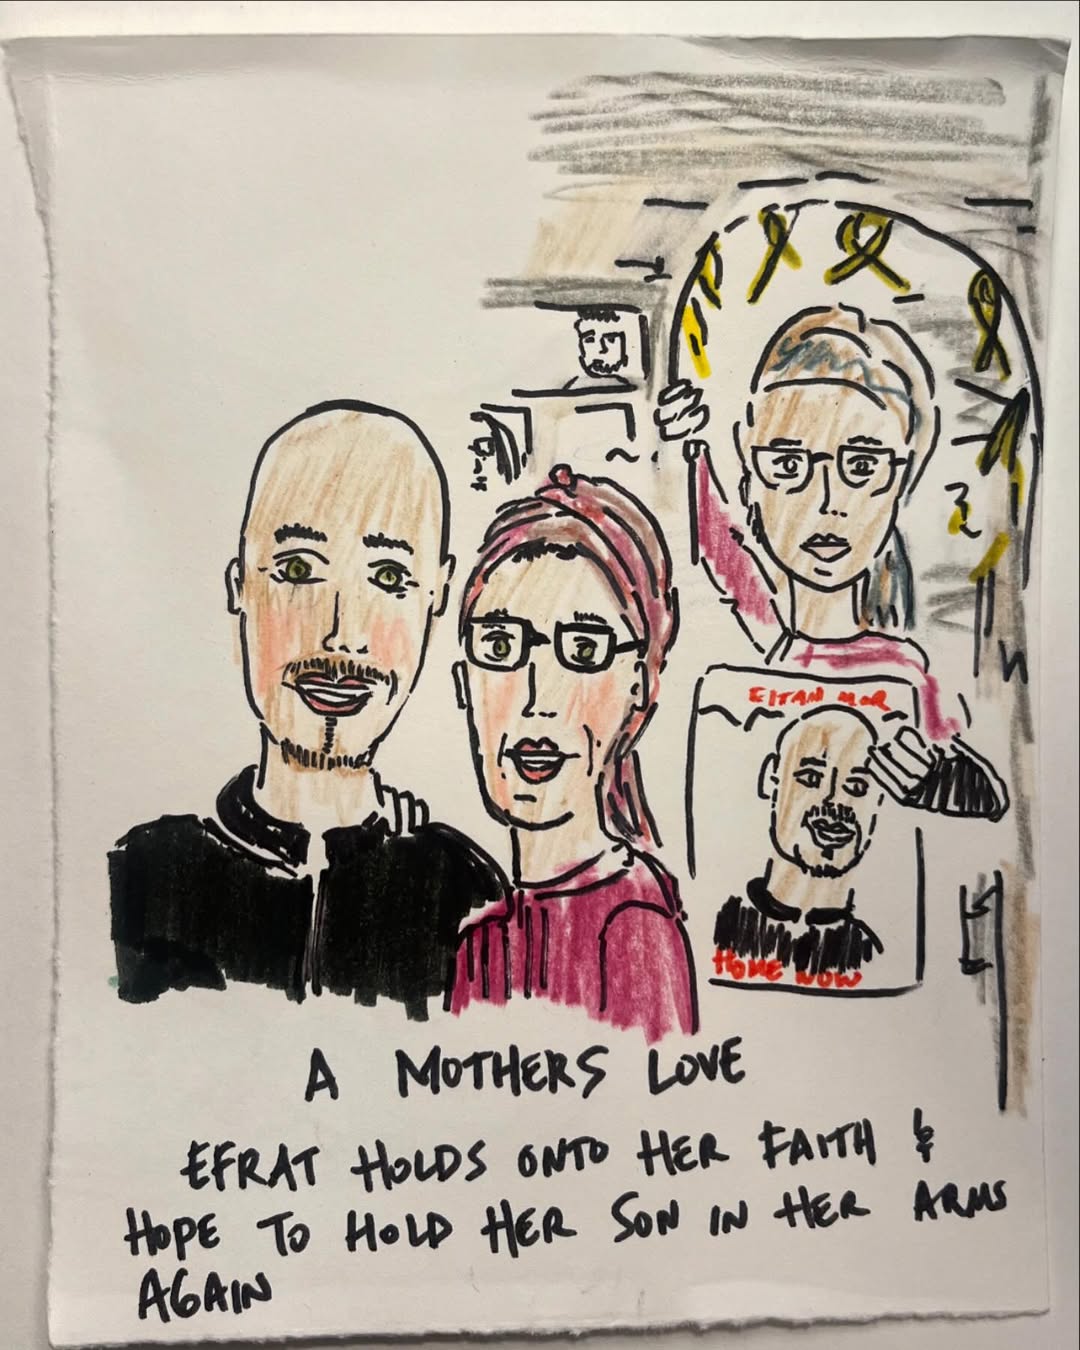 EITAN MOR
HOME NOW
A MOTHERS LOVE
EFRAT HOLDS ONTO HER FAITH &
HOPE TO HOLD HER SON IN HER ARMS
AGAIN